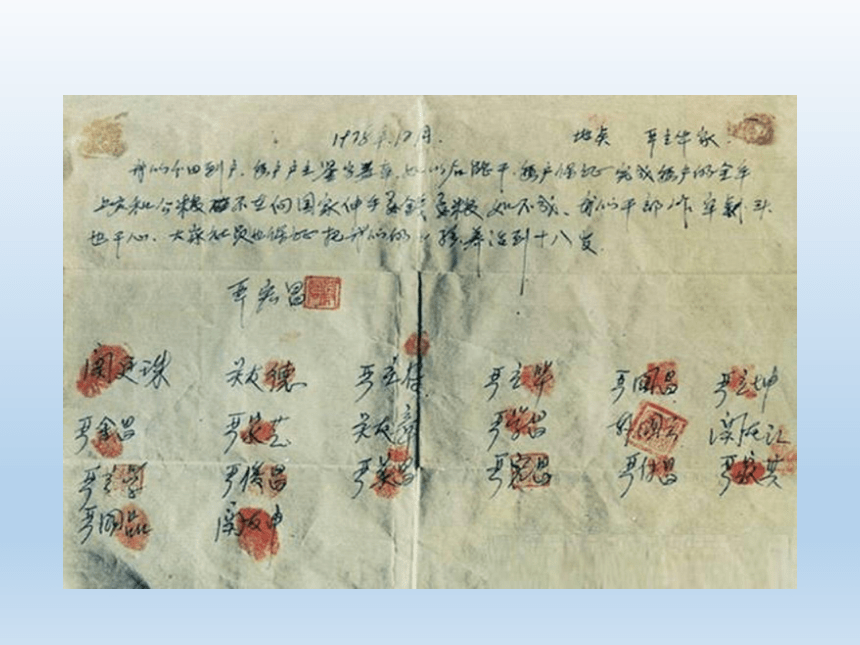 1978年12月. 地点 严立华家.
我们分田到户,每户户主签字盖章,如以后能干,每户保证完成每户的全年
上交和公粮 不在向国家伸手要钱要粮,如不成,我们干部作牢刹头
也干心,大家社员也保证把我们的小孩养活到十八岁.
严宏昌
关廷珠 关友德 严立符 严立华 严国昌 严立坤
严金昌 严家芝 关友章 严学昌 韩国云 关友江
严立学 严俊昌 严美昌 严宏昌 严付昌 严家其
严国品 关友申